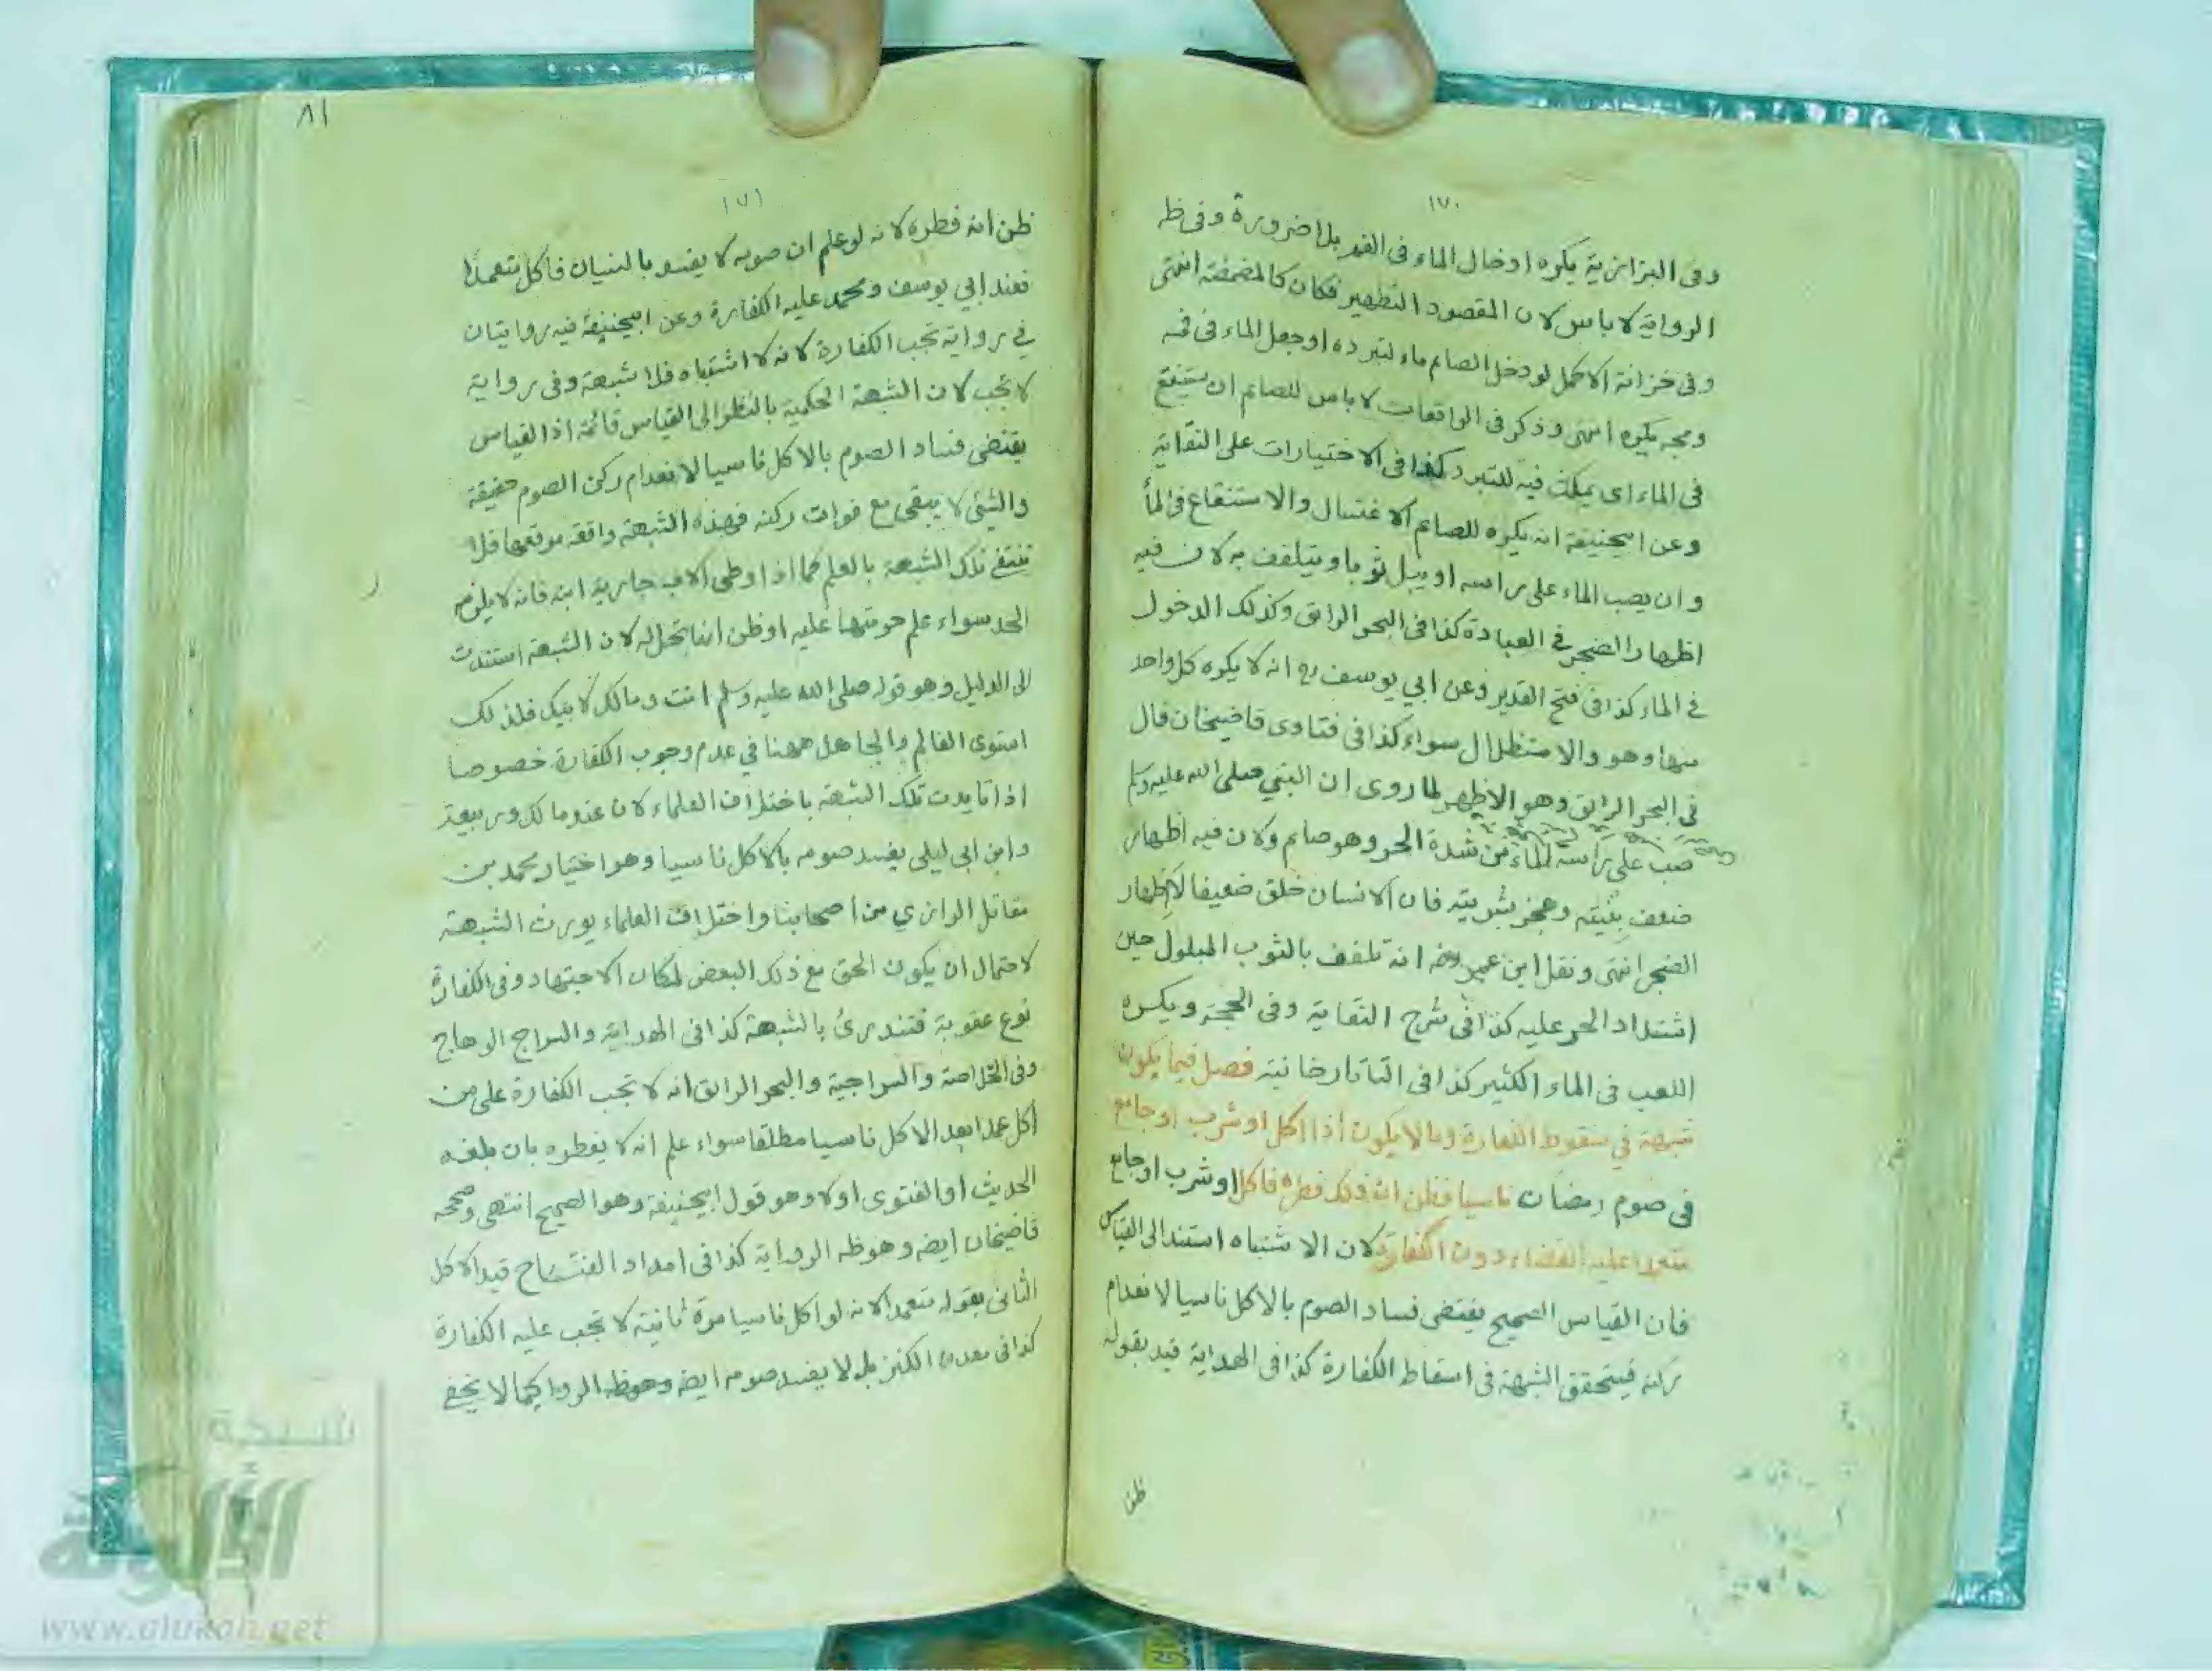 ١٧٠
وفى البزازية يكره ادخال الماء فى الفم بلا ضرورة وفى ظ
الرواية لا باس لان المقصود التطهير فكان كالمضمضة انتهى
وفى خزانة الاكمل لو دخل الصائم ماء لتبرده او جعل الماء فى فمه
ومجه يكره انتهى وذكر فى الواقعات لا باس للصائم ان يستنقع
فى الماء اى يمكث فيه للتبرد كذا فى الاختيارات على النقاية
وعن ابيحنيفة انه يكره للصائم الاغتسال والاستنقاع فى الما
وان يصب الماء على راسه او يبل ثوبا ويتلفف به لان فيه
اظهار الضجر فى العبادة كذا فى البحر الرائق وكذلك الدخول
فى الماء كذا فى فتح القدير وعن ابي يوسف رح انه لا يكره كل واحد
منها وهو والاستظلال سواء كذا فى فتاوى قاضيخان قال
فى البحر الرائق وهو الاظهر لما روى ان النبي صلى الله عليه وسلم
صب على راسه الماء من شدة الحر وهو صايم ولان فيه اظهار
ضعف بنيته وعجز بشريته فان الانسان خلق ضعيفا لا اظهار
الضجر انتهى ونقل ابن عمر رضه انه تلفف بالثوب المبلول حين
اشتداد الحر عليه كذا فى شرح النقاية وفى الحجة ويكره
اللعب فى الماء الكثير كذا فى التاتارخانية فصل فيما يكون
شبهة في سقوط الكفارة وما لا يكون اذا اكل او شرب او جامع
فى صوم رمضان ناسيا فظن ان ذلك فطره فاكل او شرب او جامع
متعمدا عليه القضاء دون الكفارة لان الاشتباه استند الى القياس
فان القياس الصحيح يقتضى فساد الصوم بالاكل ناسيا لانعدام
ركنه فيتحقق الشبهة فى اسقاط الكفارة كذا فى الهداية قيد بقوله
ظن
٨١
١٧١
ظن انه فطره لانه لو علم ان صومه لا يفسد بالنسيان فاكل متعمدا
فعند ابي يوسف ومحمد عليه الكفارة وعن ابيحنيفة فيه روايتان
في رواية تجب الكفارة لانه لا اشتباه فلا شبهة وفى رواية
لا تجب لان الشبهة الحكمية بالنظر الى القياس قائمة اذا القياس
يقتضى فساد الصوم بالاكل ناسيا لانعدام ركن الصوم حقيقة
والشئى لا يبقى مع فوات ركنه فهذه الشبهة واقعة موقعها فلا
تنتفي تلك الشبهة بالعلم كما اذا وطى الاب جارية ابنه فانه لا يلزمه
الحد سواء علم حرمتها عليه او ظن انها تحل له لان الشبهة استندت
الى الدليل وهو قوله صلى الله عليه وسلم انت ومالك لابيك فلذلك
استوى العالم والجاهل ههنا في عدم وجوب الكفارة خصوصا
اذا تايدت تلك الشبهة باختلاف العلماء لان عند مالك وربيعة
وابن ابي ليلى يفسد صومه بالاكل ناسيا وهو اختيار محمد بن
مقاتل الرازي من اصحابنا واختلاف العلماء يورث الشبهة
لاحتمال ان يكون الحق مع ذلك البعض لمكان الاجتهاد وفى الكفارة
نوع عقوبة فتندرئ بالشبهة كذا فى الهداية والسراج الوهاج
وفى الخلاصة والسراجية والبحر الرائق انه لا تجب الكفارة على من
اكل عمدا بعد الاكل ناسيا مطلقا سواء علم انه لا يفطره بان بلغه
الحديث او الفتوى اولا وهو قول ابيحنيفة وهو الصحيح انتهى وصححه
قاضيخان ايضه وهو ظه الرواية كذا فى امداد الفتاح قيد الاكل
الثانى بقوله متعمدا لانه لو اكل ناسيا مرة ثانية لا تجب عليه الكفارة
كذا فى معدن الكنز بل لا يفسد صومه ايضه وهو ظه الرواية كما لا يخفى
شبكة
الألوكة
www.alukah.net